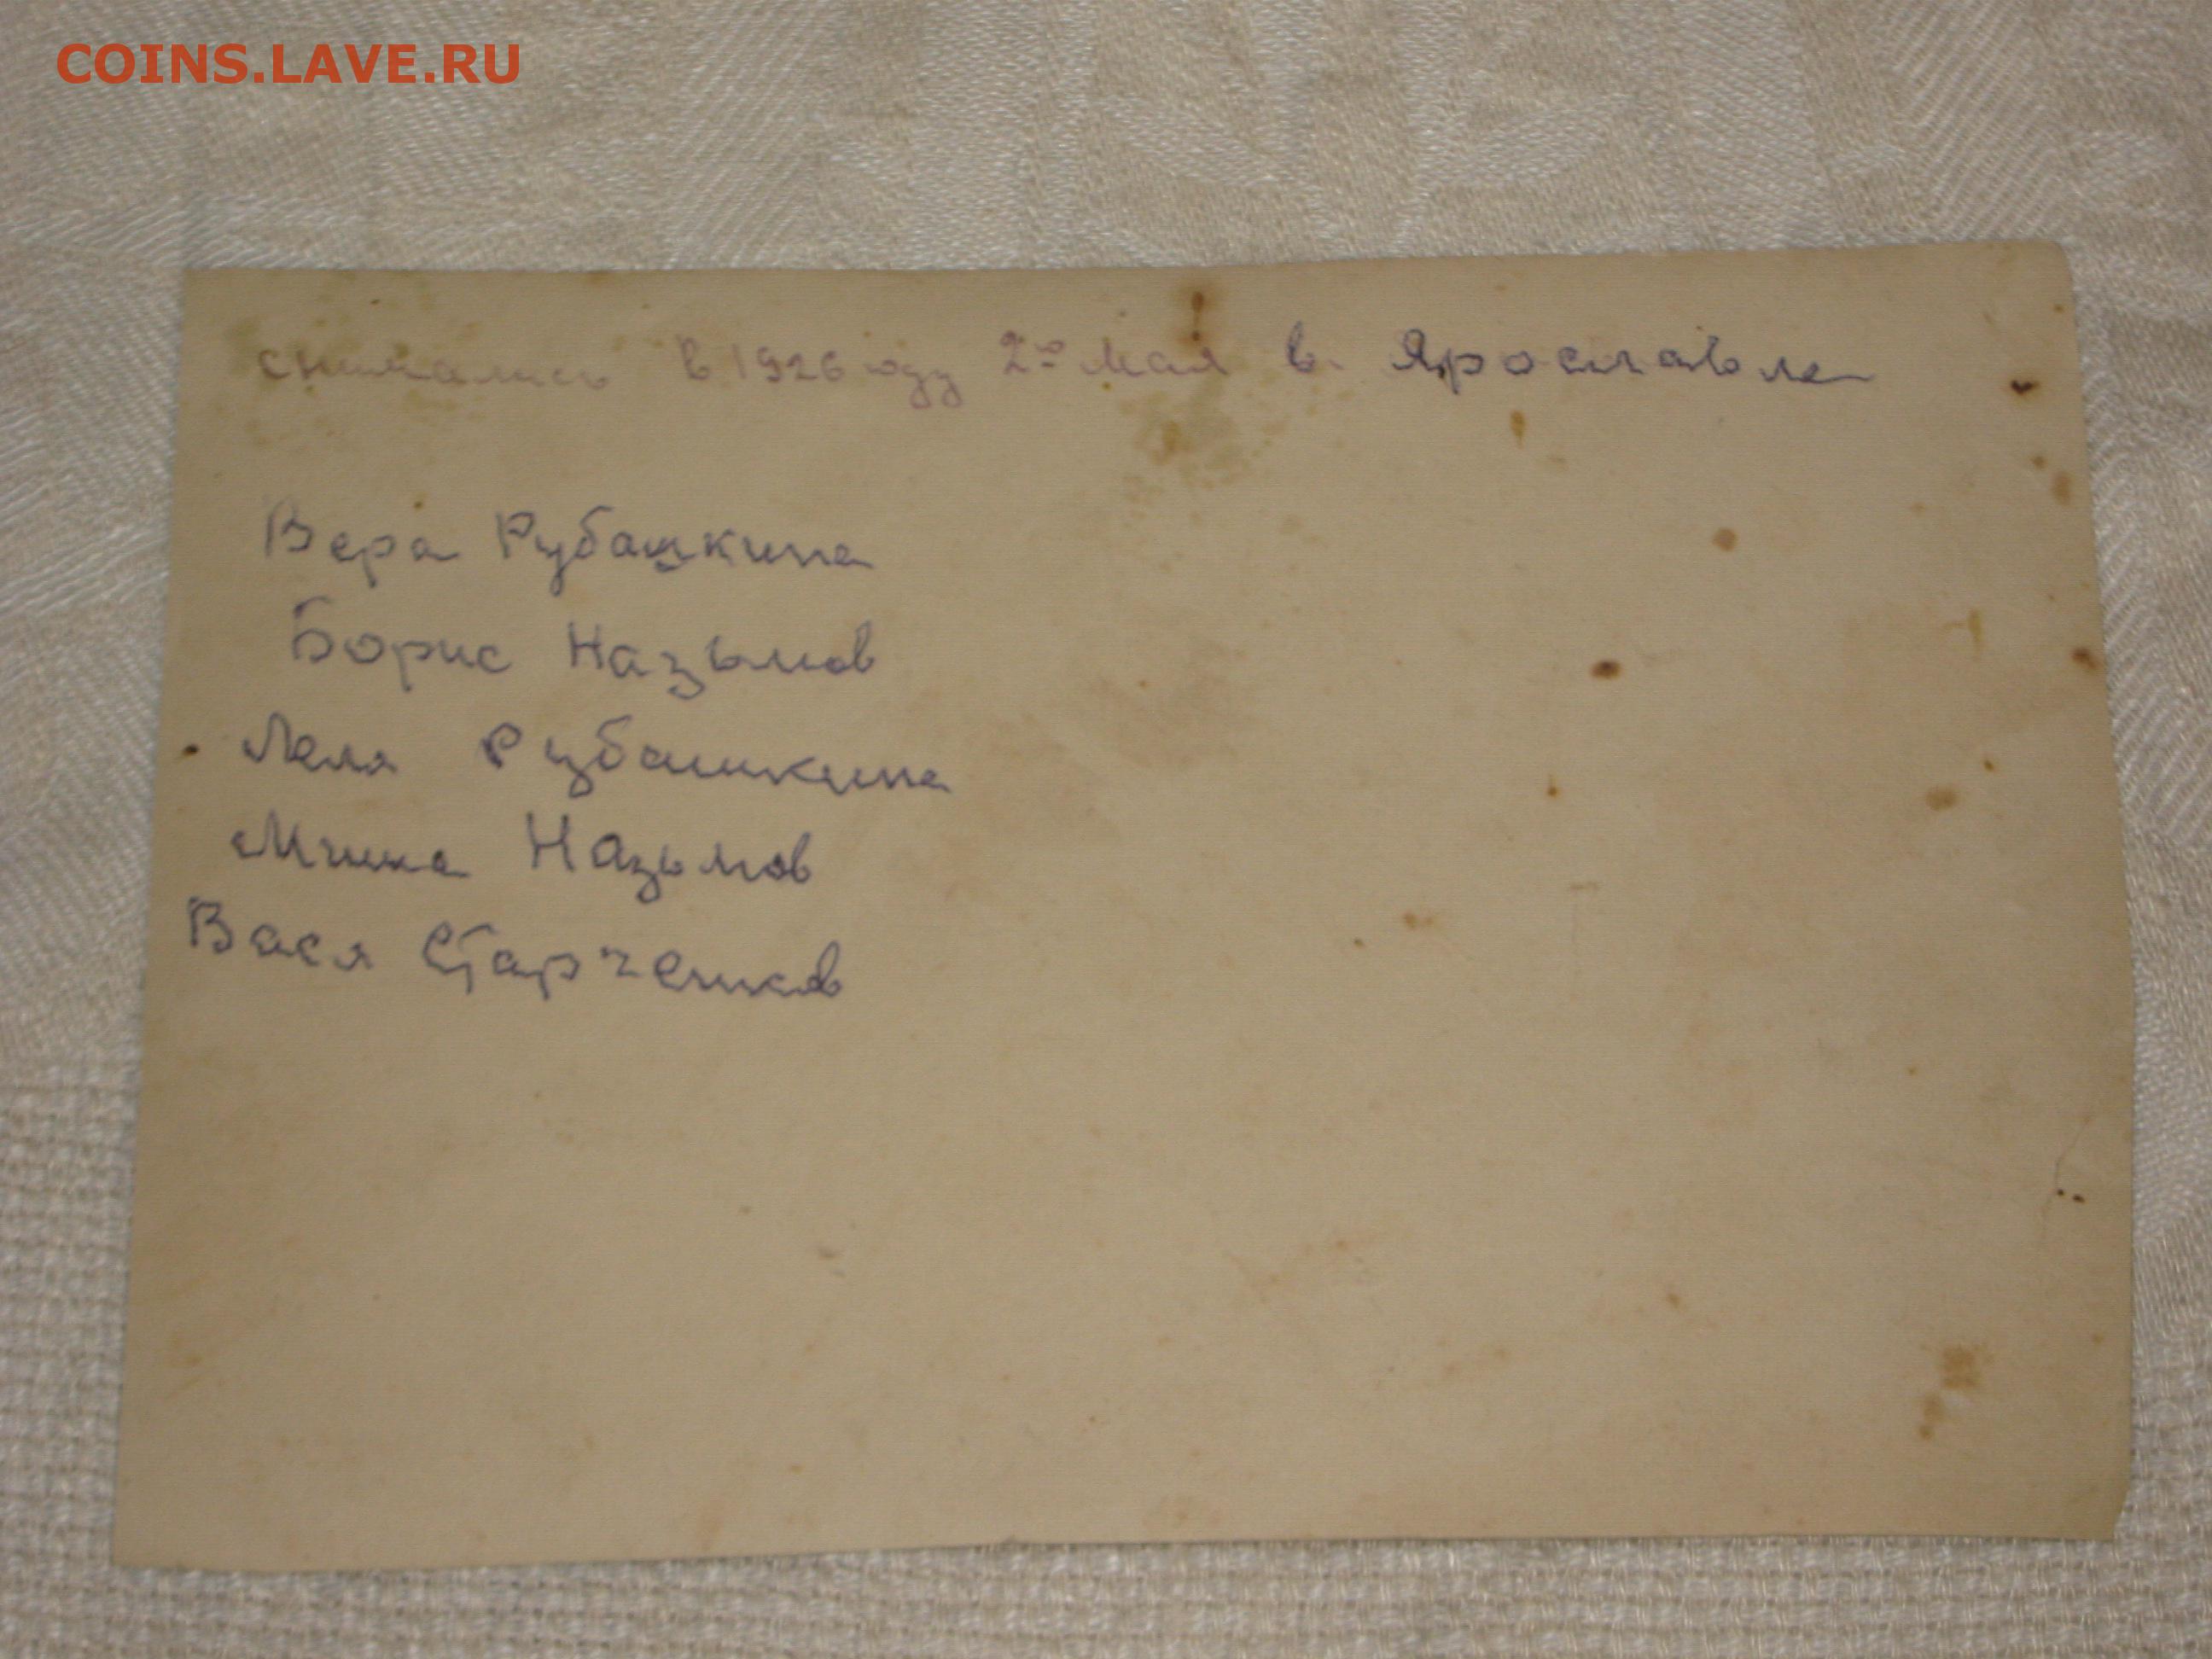 COINS.LAVE.RU
снимались в 1926 оду 2го мая в. Ярославле
Вера Рубашкина
Борис Назымов
Леля Рубашкина
Миша Назымов
Вася Старченков